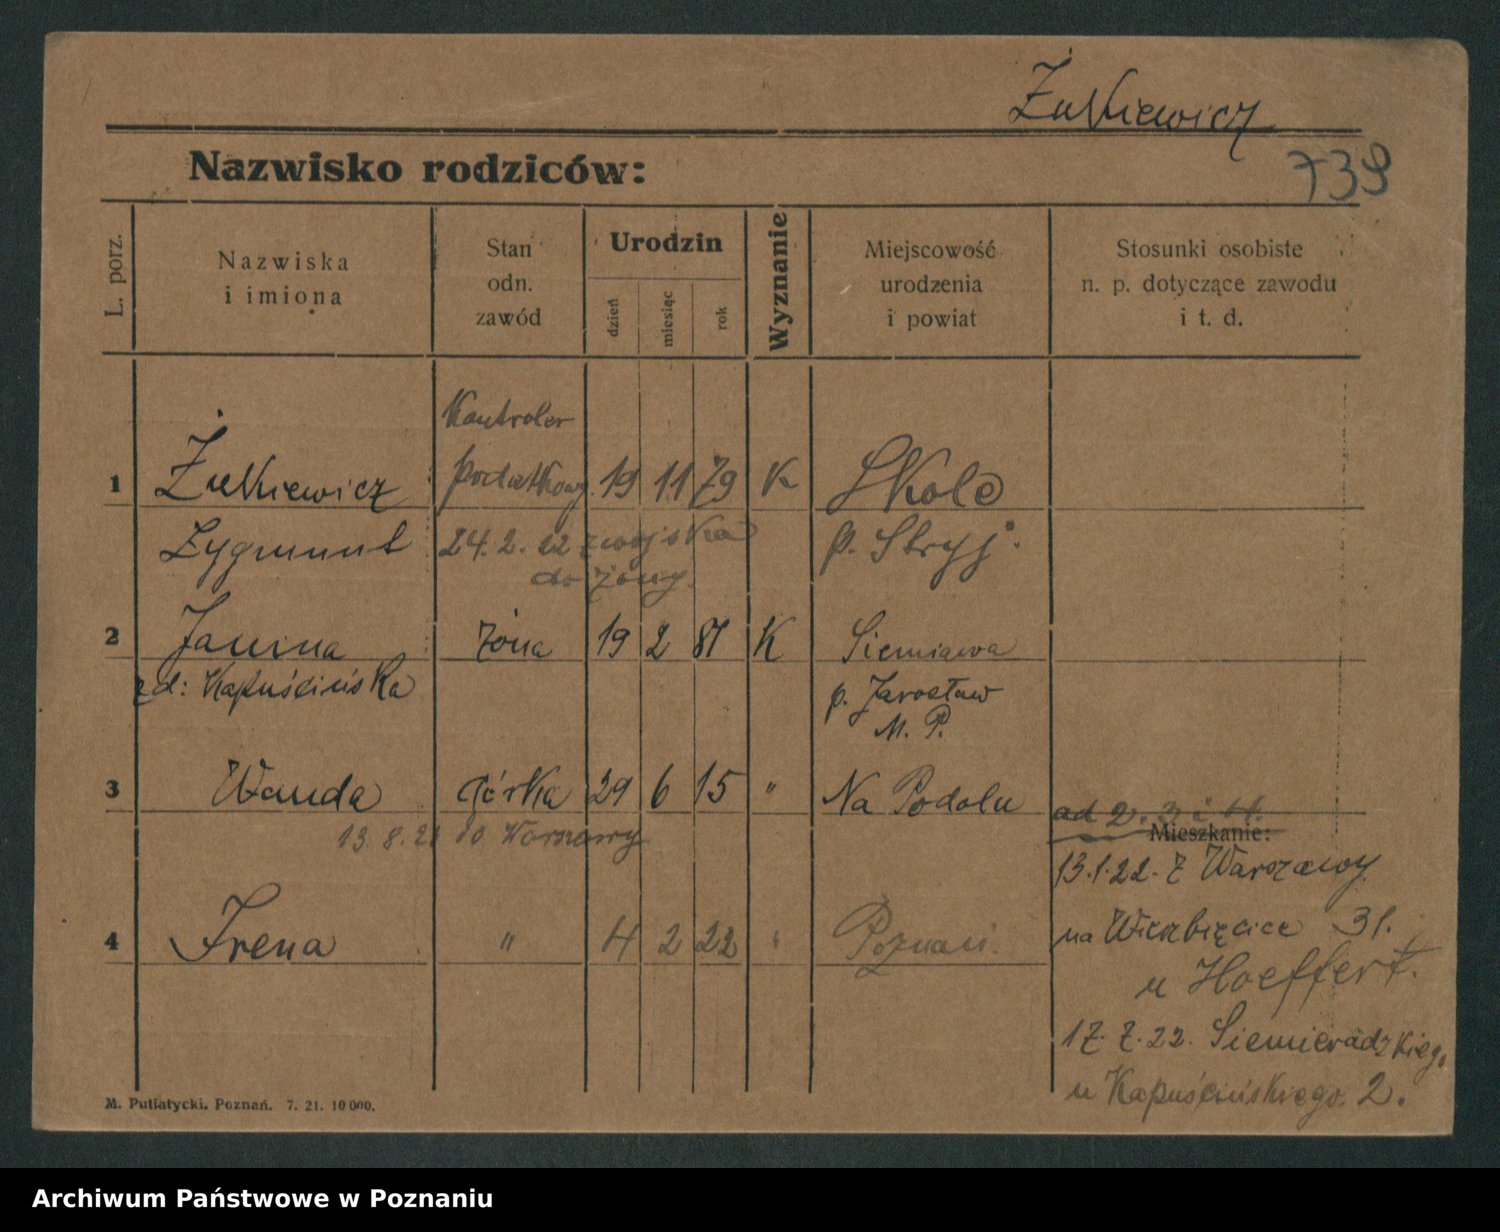 Żulkiewicz
Nazwisko rodziców:
739
L. porz.
Nazwiska
i imiona
Stan
odn.
zawód
Urodzin
dzień
miesiąc
rok
Wyznanie
Miejscowość
urodzenia
i powiat
Stosunki osobiste
n. p. dotyczące zawodu
i t. d.
Kontroler
1 Żulkiewicz podatkowy. 19 11 79 K Skole
Zygmunt 24. 2. 22 z wojska p. Stryj.
do żony.
2 Janina żona 19 2 87 K Sieniawa
zd: Kapuścińska p. Jarosław
M. P.
3 Wanda córka 29 6 15 " Na Podolu
ad 2. 3 i 4.
13. 8. 21 do Warszawy Mieszkanie:
13.1.22. z Warszawy.
4 Irena " 4 2 22 " Poznań. na Wierzbięcice 31.
u Hoeffert.
17. 7. 22. Siemieradzkieg.
u Kapuścińskiego. 2.
M. Putiatycki. Poznań. 7. 21. 10000.
Archiwum Państwowe w Poznaniu